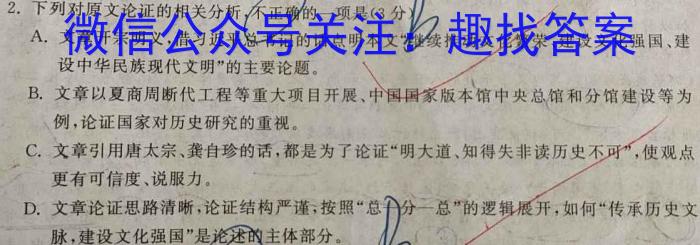 2. 下列对原文论证的相关分析,不正确的一项是(3分)
微信公众号关注: 趣找答案
A. 文章开宗明义,借 明本文"继续 强国、建
设中华民族现代文明"的主要论题。
B. 文章以夏商周断代工程等重大项目开展、中国国家版本馆中央总馆和分馆建设等为
例,论证国家对历史研究的重视。
C. 文章引用唐太宗、龚自珍的话,都是为了论证"明大道、知得失非读历史不可",使观点
更有可信度、说服力。
D. 文章论证思路清晰,论证结构严谨,按照"总—分—总"的逻辑展开,如何"传承历史文
脉,建设文化强国"是论述的主体部分。